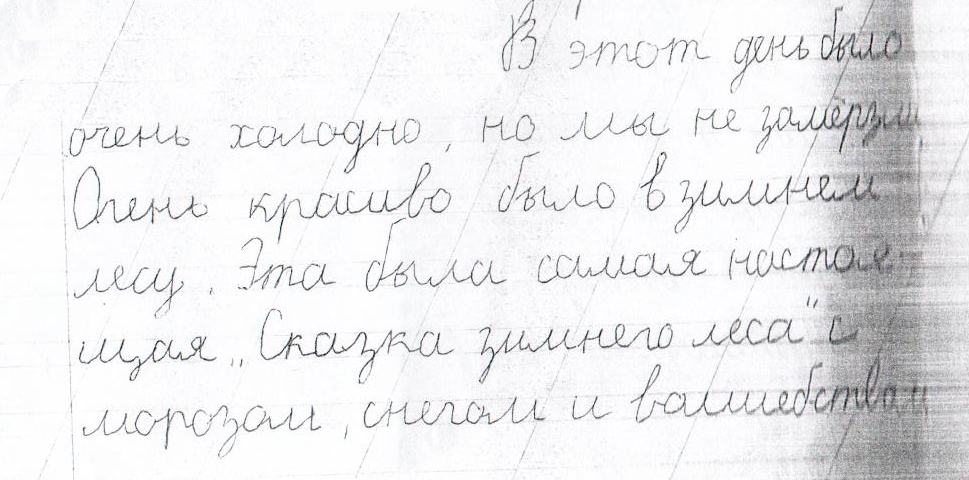 В этот день было
очень холодно, но мы не замёрзли
Очень красиво было в зимнем
лесу. Эта была самая настоя
щая „Сказка зимнего леса" с
морозом, снегом и валшебствам